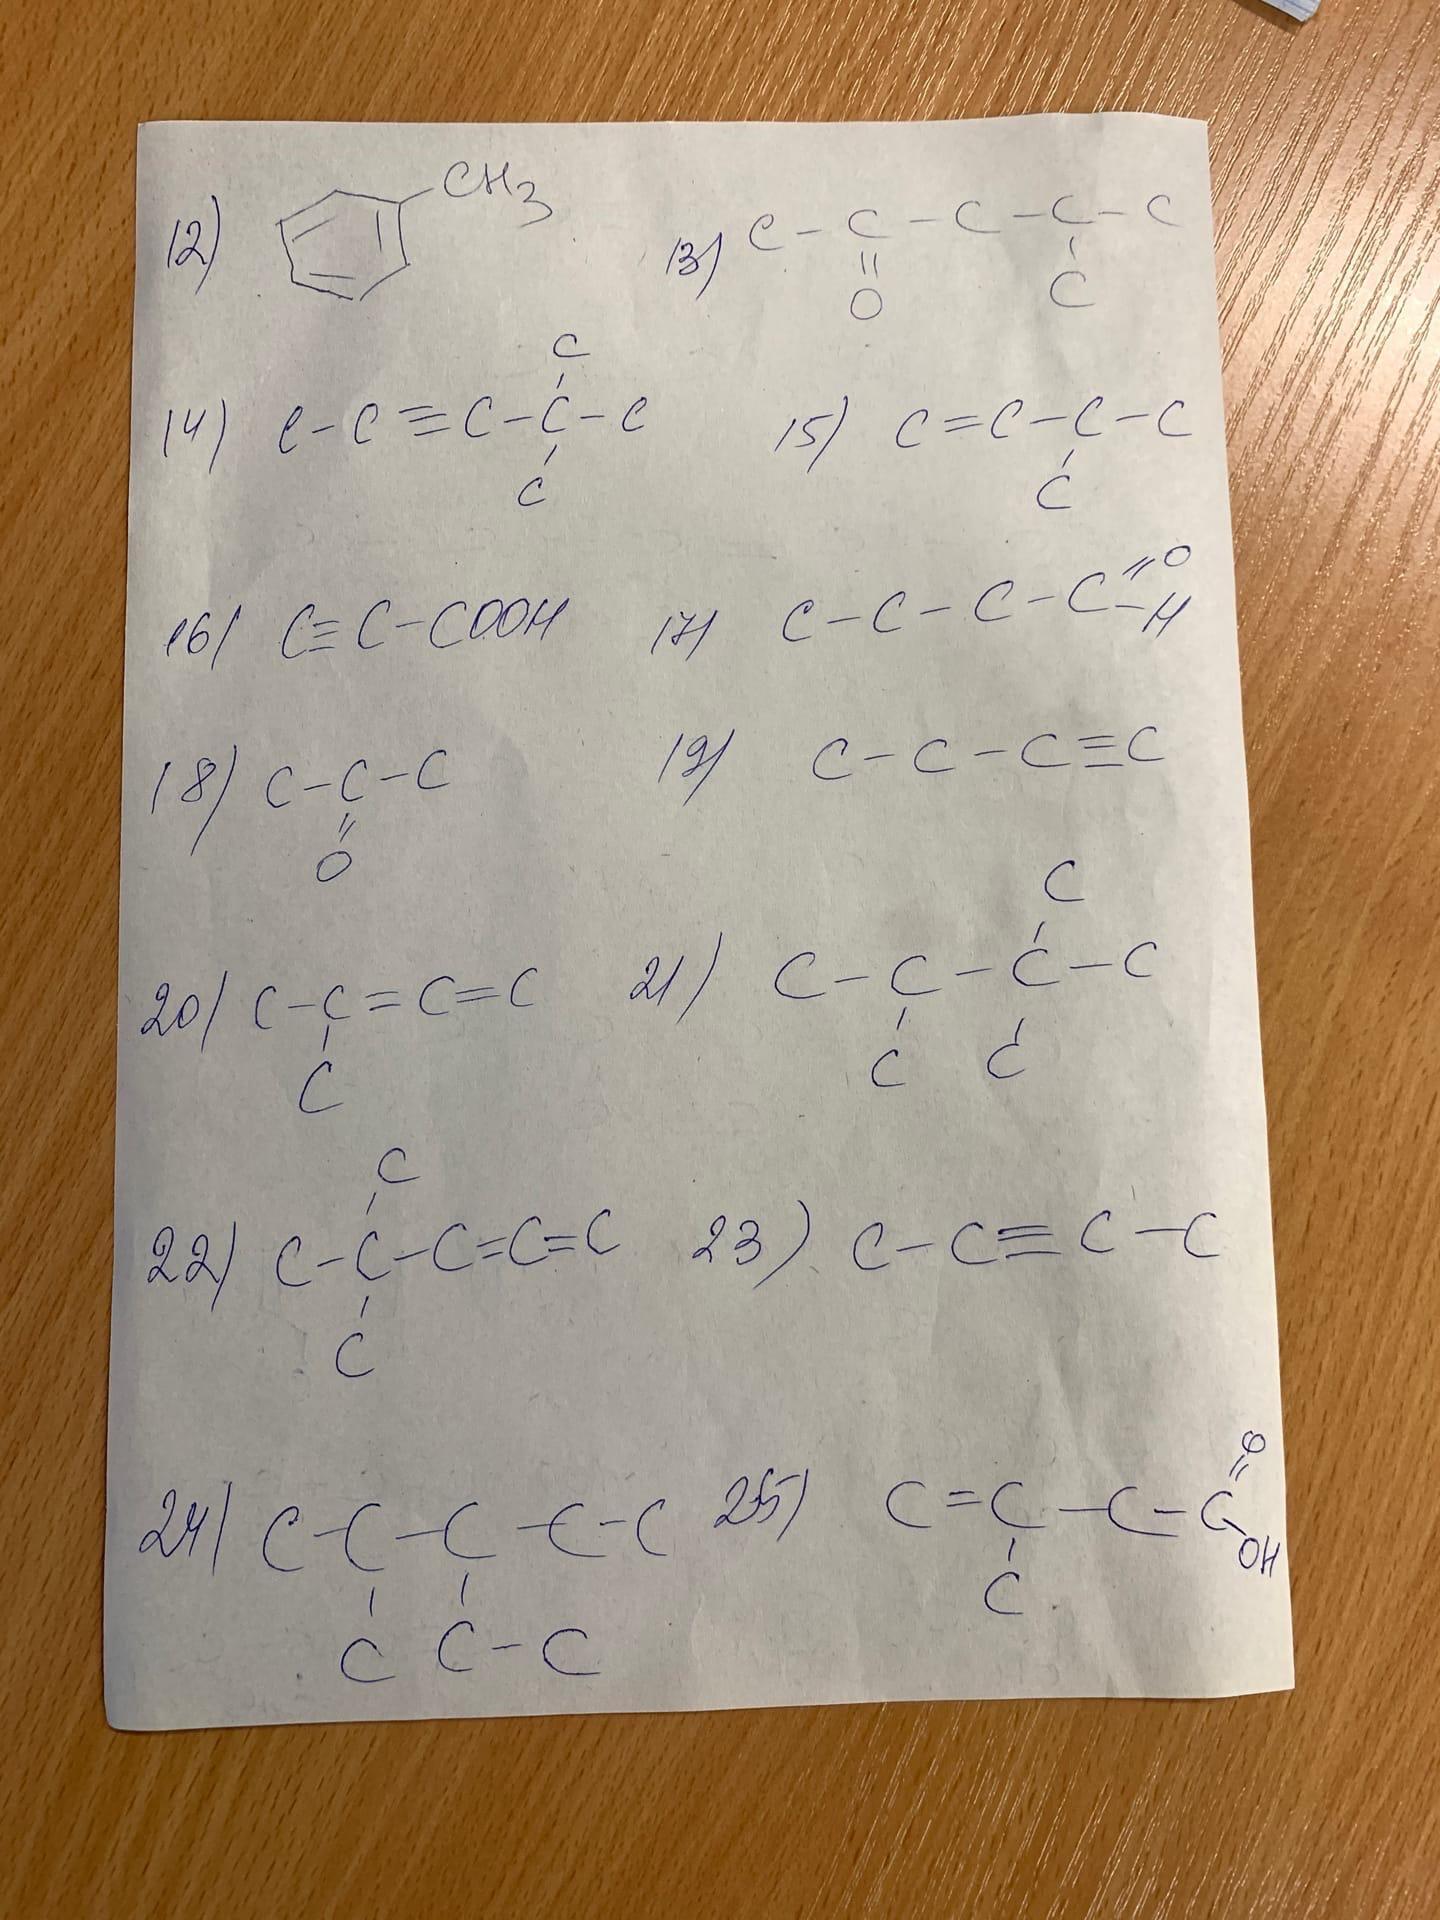 12) CH3
13) C - C - C - C - C
O C
C
14) C - C ≡ C - C - C
C
15) C = C - C - C
C
16) C ≡ C - COOH
17) C - C - C - C = O
- H
18) C - C - C
O
19) C - C - C ≡ C
20) C - C = C = C
C
C
21) C - C - C - C
C C
C
22) C - C - C = C = C
C
23) C - C ≡ C - C
24) C - C - C - C - C
C C - C
O
25) C = C - C - C
OH
C